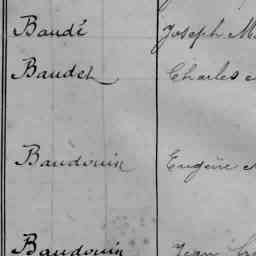 Baudé Joseph M
Baudet Charles
Baudouin Eugène
Baudouin Jean